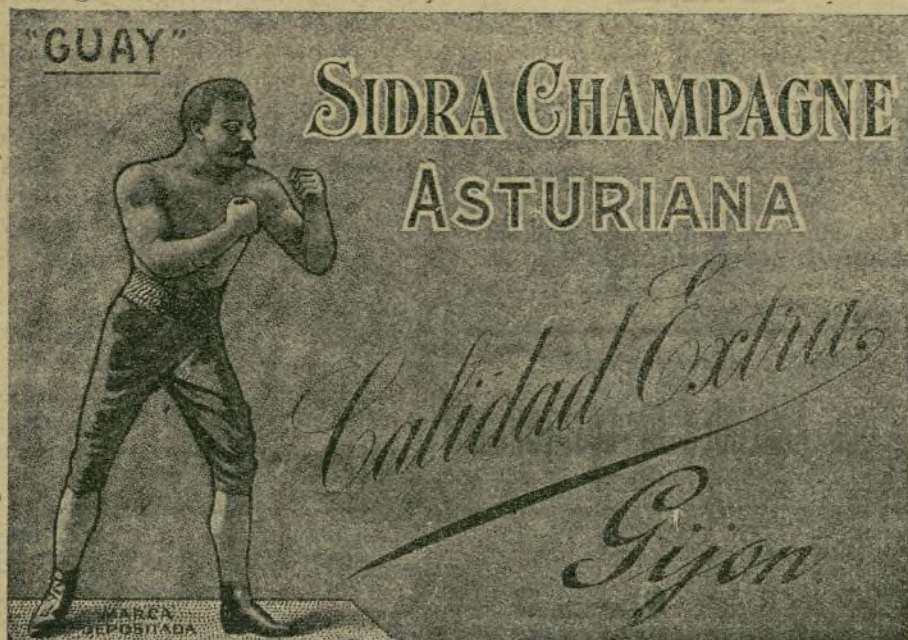 "GUAY"
SIDRA CHAMPAGNE
ASTURIANA
Calidad Extra
Gijon
MARCA
DEPOSITADA